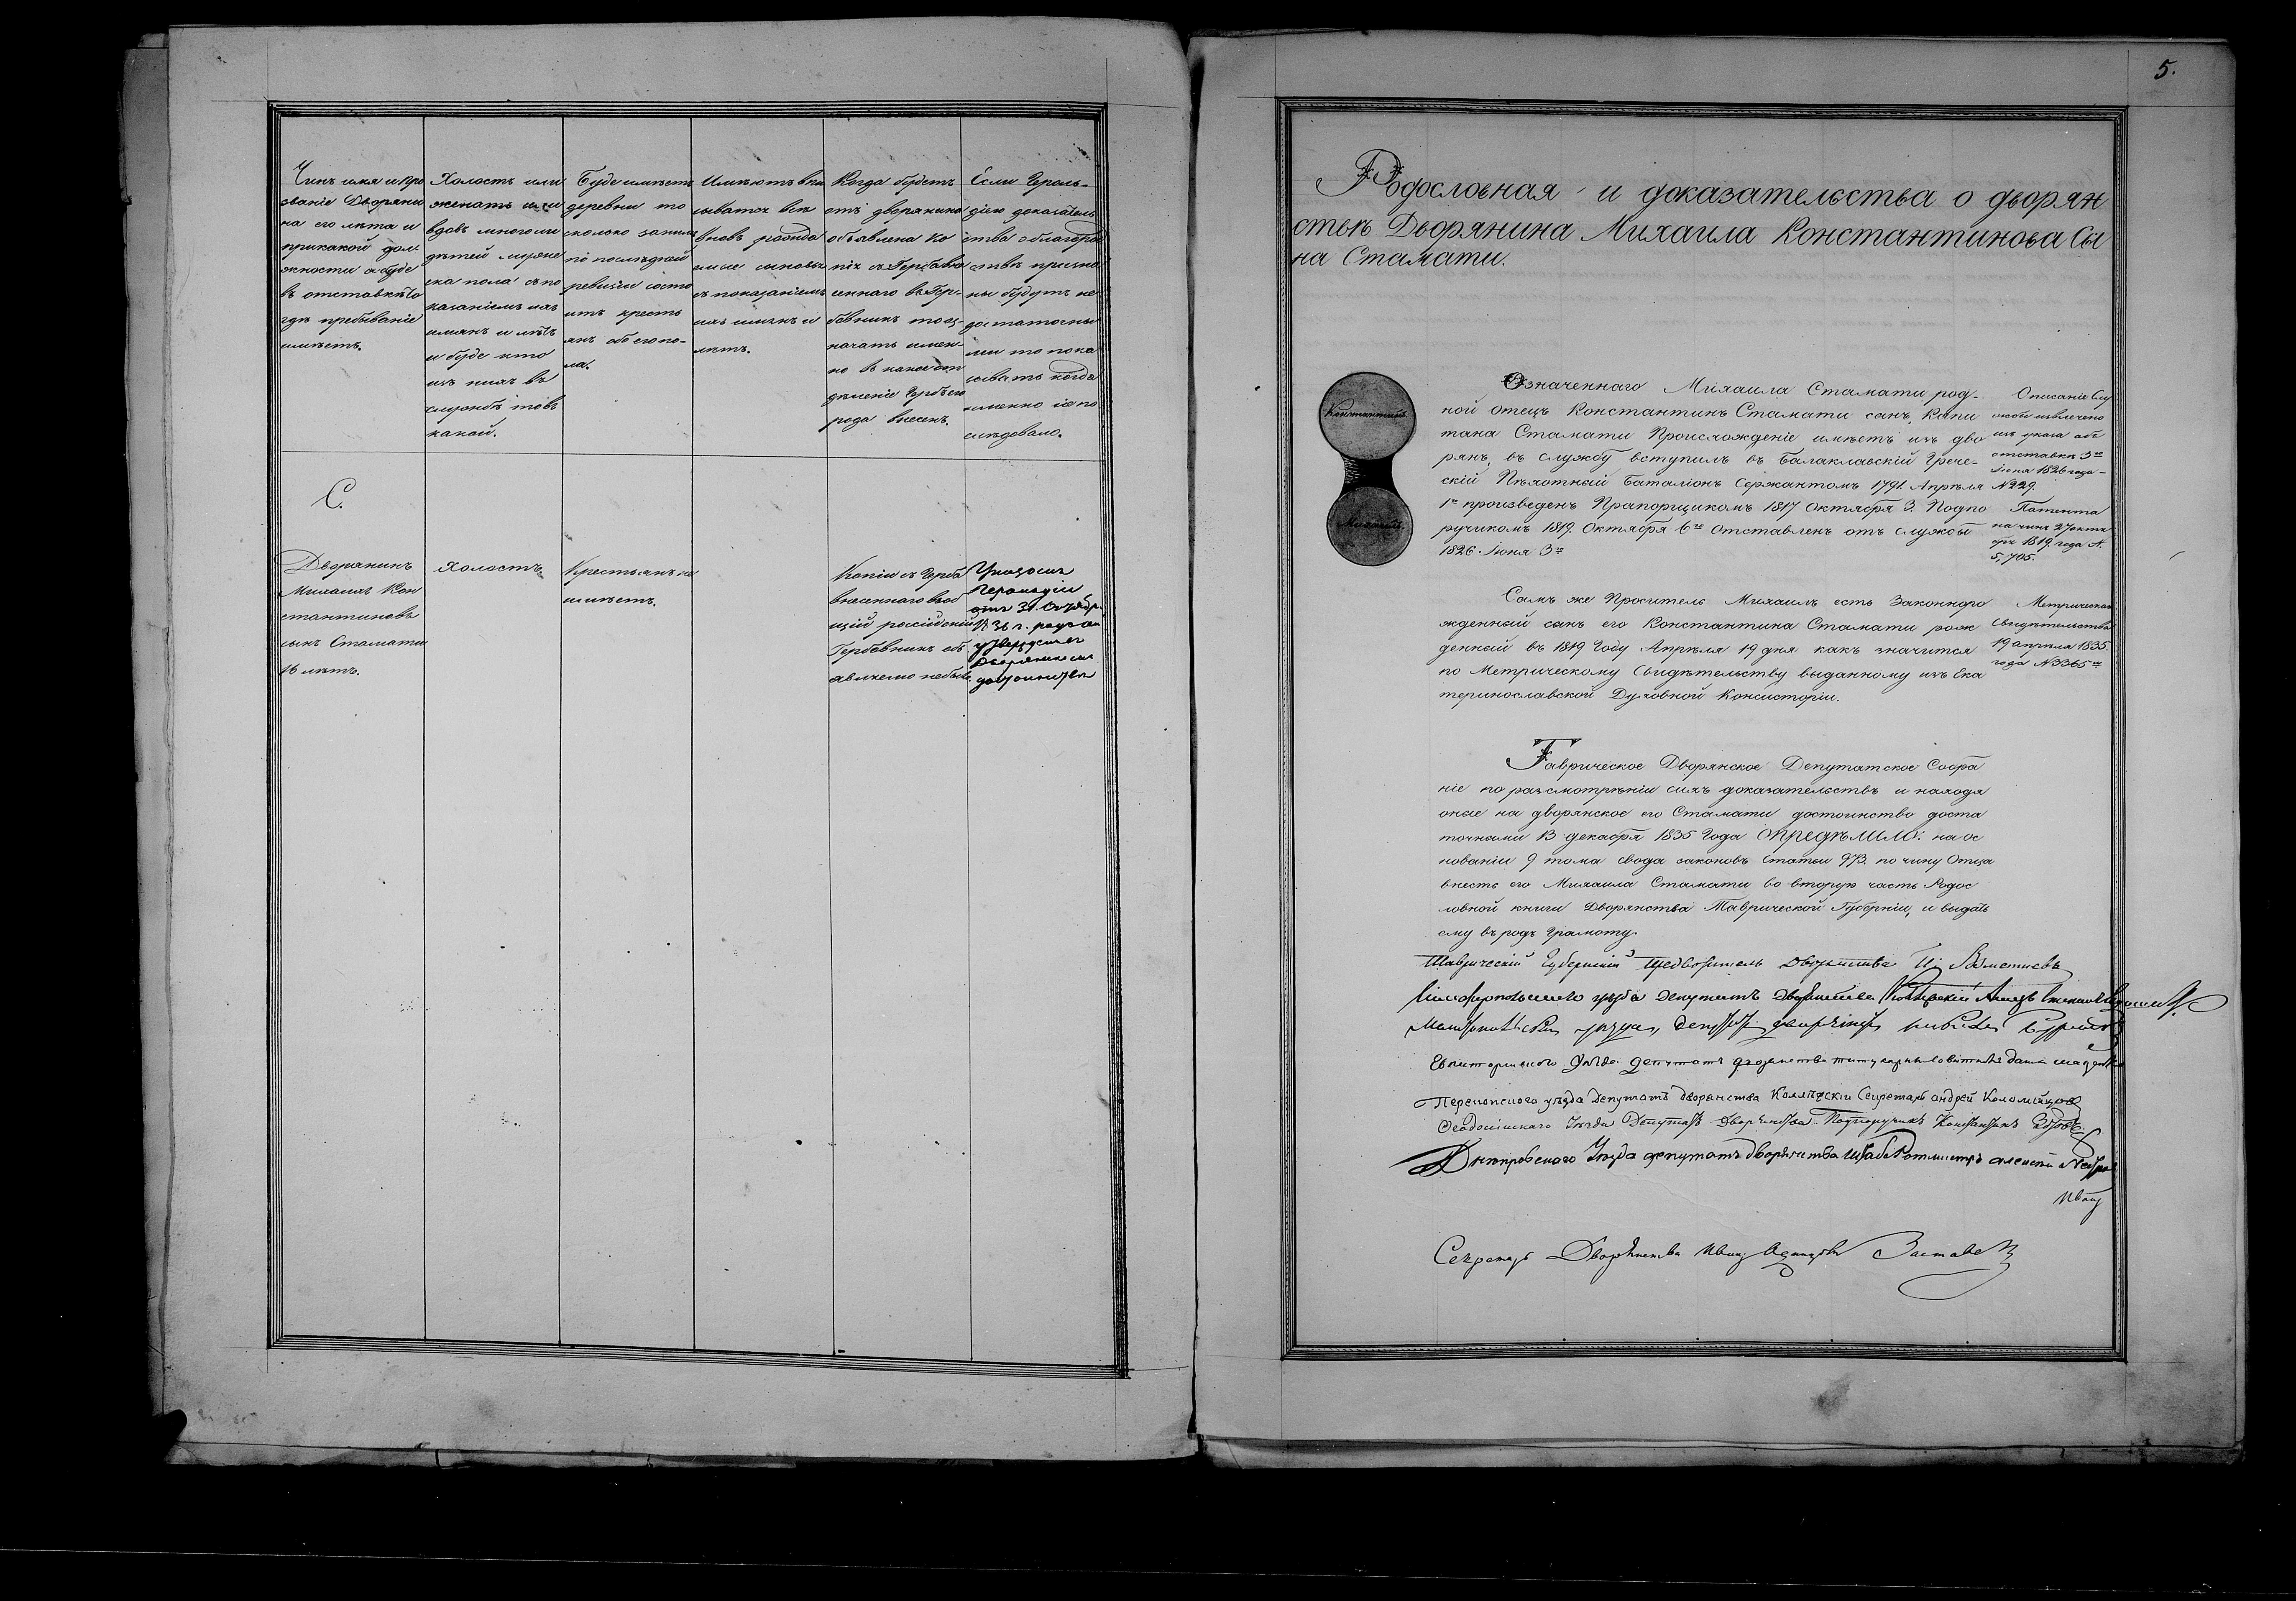 Чинъ имя и про
званіе Дворяни
на его лѣта и
при какой дол
жности а буде
въ отставкѣ то
гдѣ пребываніе
имѣетъ.
Холостъ или
женатъ или
вдовъ много ли
дѣтей муже
ска пола съ по
казаніемъ ихъ
имянъ и лѣтъ
и буде кто
изъ нихъ въ
службѣ то въ
какой.
Буде имѣетъ
деревни то
сколько за нимъ
по послѣдней
ревизіи состо
итъ кресть
янъ обоего по-
ла.
Имѣютъ впи
сываться всѣ
вновь рожда
емые сыновья
съ показаніемъ
ихъ имянъ и
лѣтъ.
Когда будетъ
отъ дворянина
объявлена ко
пія съ Герба вне
сеннаго въ Гер-
бовникъ то оз-
начать имен-
но въ какое от
дѣленіе Гербъ его
рода внесенъ.
Если Героль-
діею доказатель
ства о благород
ствѣ призна
ны будутъ не
достаточны
ми то пока
зывать когда
именно сіе по
слѣдовало.
С.
Дворянинъ
Михаилъ Кон
стантиновъ
сынъ Стамати
16 лѣтъ.
Холостъ.
Крестьянъ не
имѣетъ.
Копіи съ Герба
внесеннаго въ об
щій россійскій
Гербовникъ объ
явлено небыло.
Указомъ
Герольдіи
отъ 31
36 г.
утвержденъ
Дворянскомъ
достоинствѣ
5.
Родословная и доказательства о дворян
ствѣ Дворянина Михаила Константинова Сы
на Стамати.
Константинъ.
Михаилъ.
Означеннаго Михаила Стамати род-
ной отецъ Константинъ Стамати сынъ, Капи
тана Стамати Происхожденіе имѣетъ изъ дво
рянъ, въ службу вступилъ въ Балаклавскій Грече-
скій Пѣхотный баталіонъ Сержантомъ 1791. Апрѣля
1го произведенъ Прапорщикомъ 1817 Октября 3. Подпо
ручикомъ 1819. Октября 6го Отставленъ отъ службы
1826 Іюня 3го
Описаніе Слу
жбы извлечено
изъ указа объ
отставкѣ 3го
Іюня 1826 года -
№ 229.
Патента
на чинъ 27 октя
бря 1819 года №
5,705.
Самъ же Проситель Михаилъ есть Законноро
жденный сынъ его Константина Стамати рож
денный въ 1819 Году Апрѣля 19 дня какъ значится
по Метрическому Свидѣтельству выданному изъ Ека
теринославской Духовной Консисторіи.
Метрическаго
Свидѣтельства
19 апрѣля 1835
года № 3365го
Таврическое Дворянское Депутатское Собра
ніе по разсмотрѣніи сихъ доказательствъ и находя
оные на дворянское его Стамати достоинство доста
точными 13 декабря 1835 Года ОПРЕДѢЛИЛО: на ос
нованіи 9 тома свода законовъ статьи 973. по чину Отца
внесть его Михаила Стамати во вторую часть Родос
ловной книги Дворянства Таврической Губерніи, и выдать
ему въ родъ Грамоту.
Таврическій Губернскій Предводитель Дворянства
Симферопольскаго уѣзда депутатъ дворянства
уѣзда, депутатъ дворянства
Евпаторійского Уѣзда Депутатъ дворянства титулярный совѣтникъ
Перекопскаго уѣзда Депутатъ дворянства Колежскій Секретарь андрей Коломійцовъ
Ѳеодосійскаго Уѣзда Депутатъ Дворянства Подпоручикъ Константинъ
Днѣпровскаго Уѣзда депутатъ дворянства Штабъ Ротмистръ алексѣй
Секретарь Дворянства Заставе